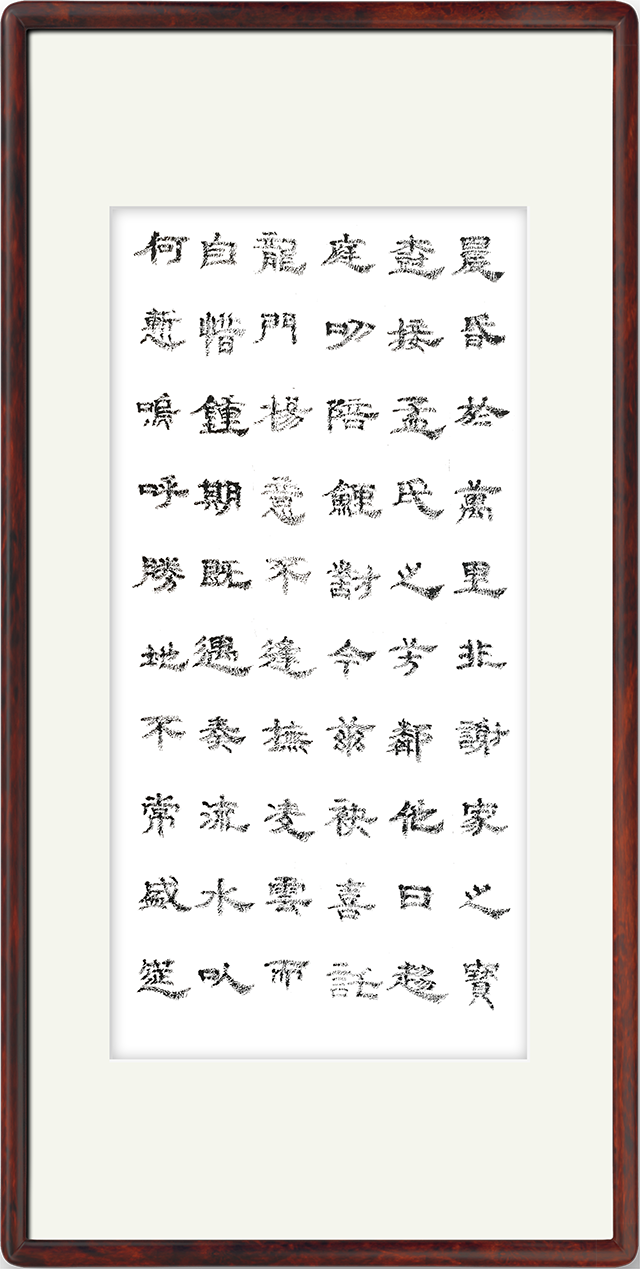 晨昏於萬里非謝家之寶
接孟氏之芳鄰他日趨
庭叨陪鯉對今茲袂喜託
龍門楊意不逢撫凌雲而
自惜鍾期既遇奏流水以
何慙嗚呼勝地不常盛筵